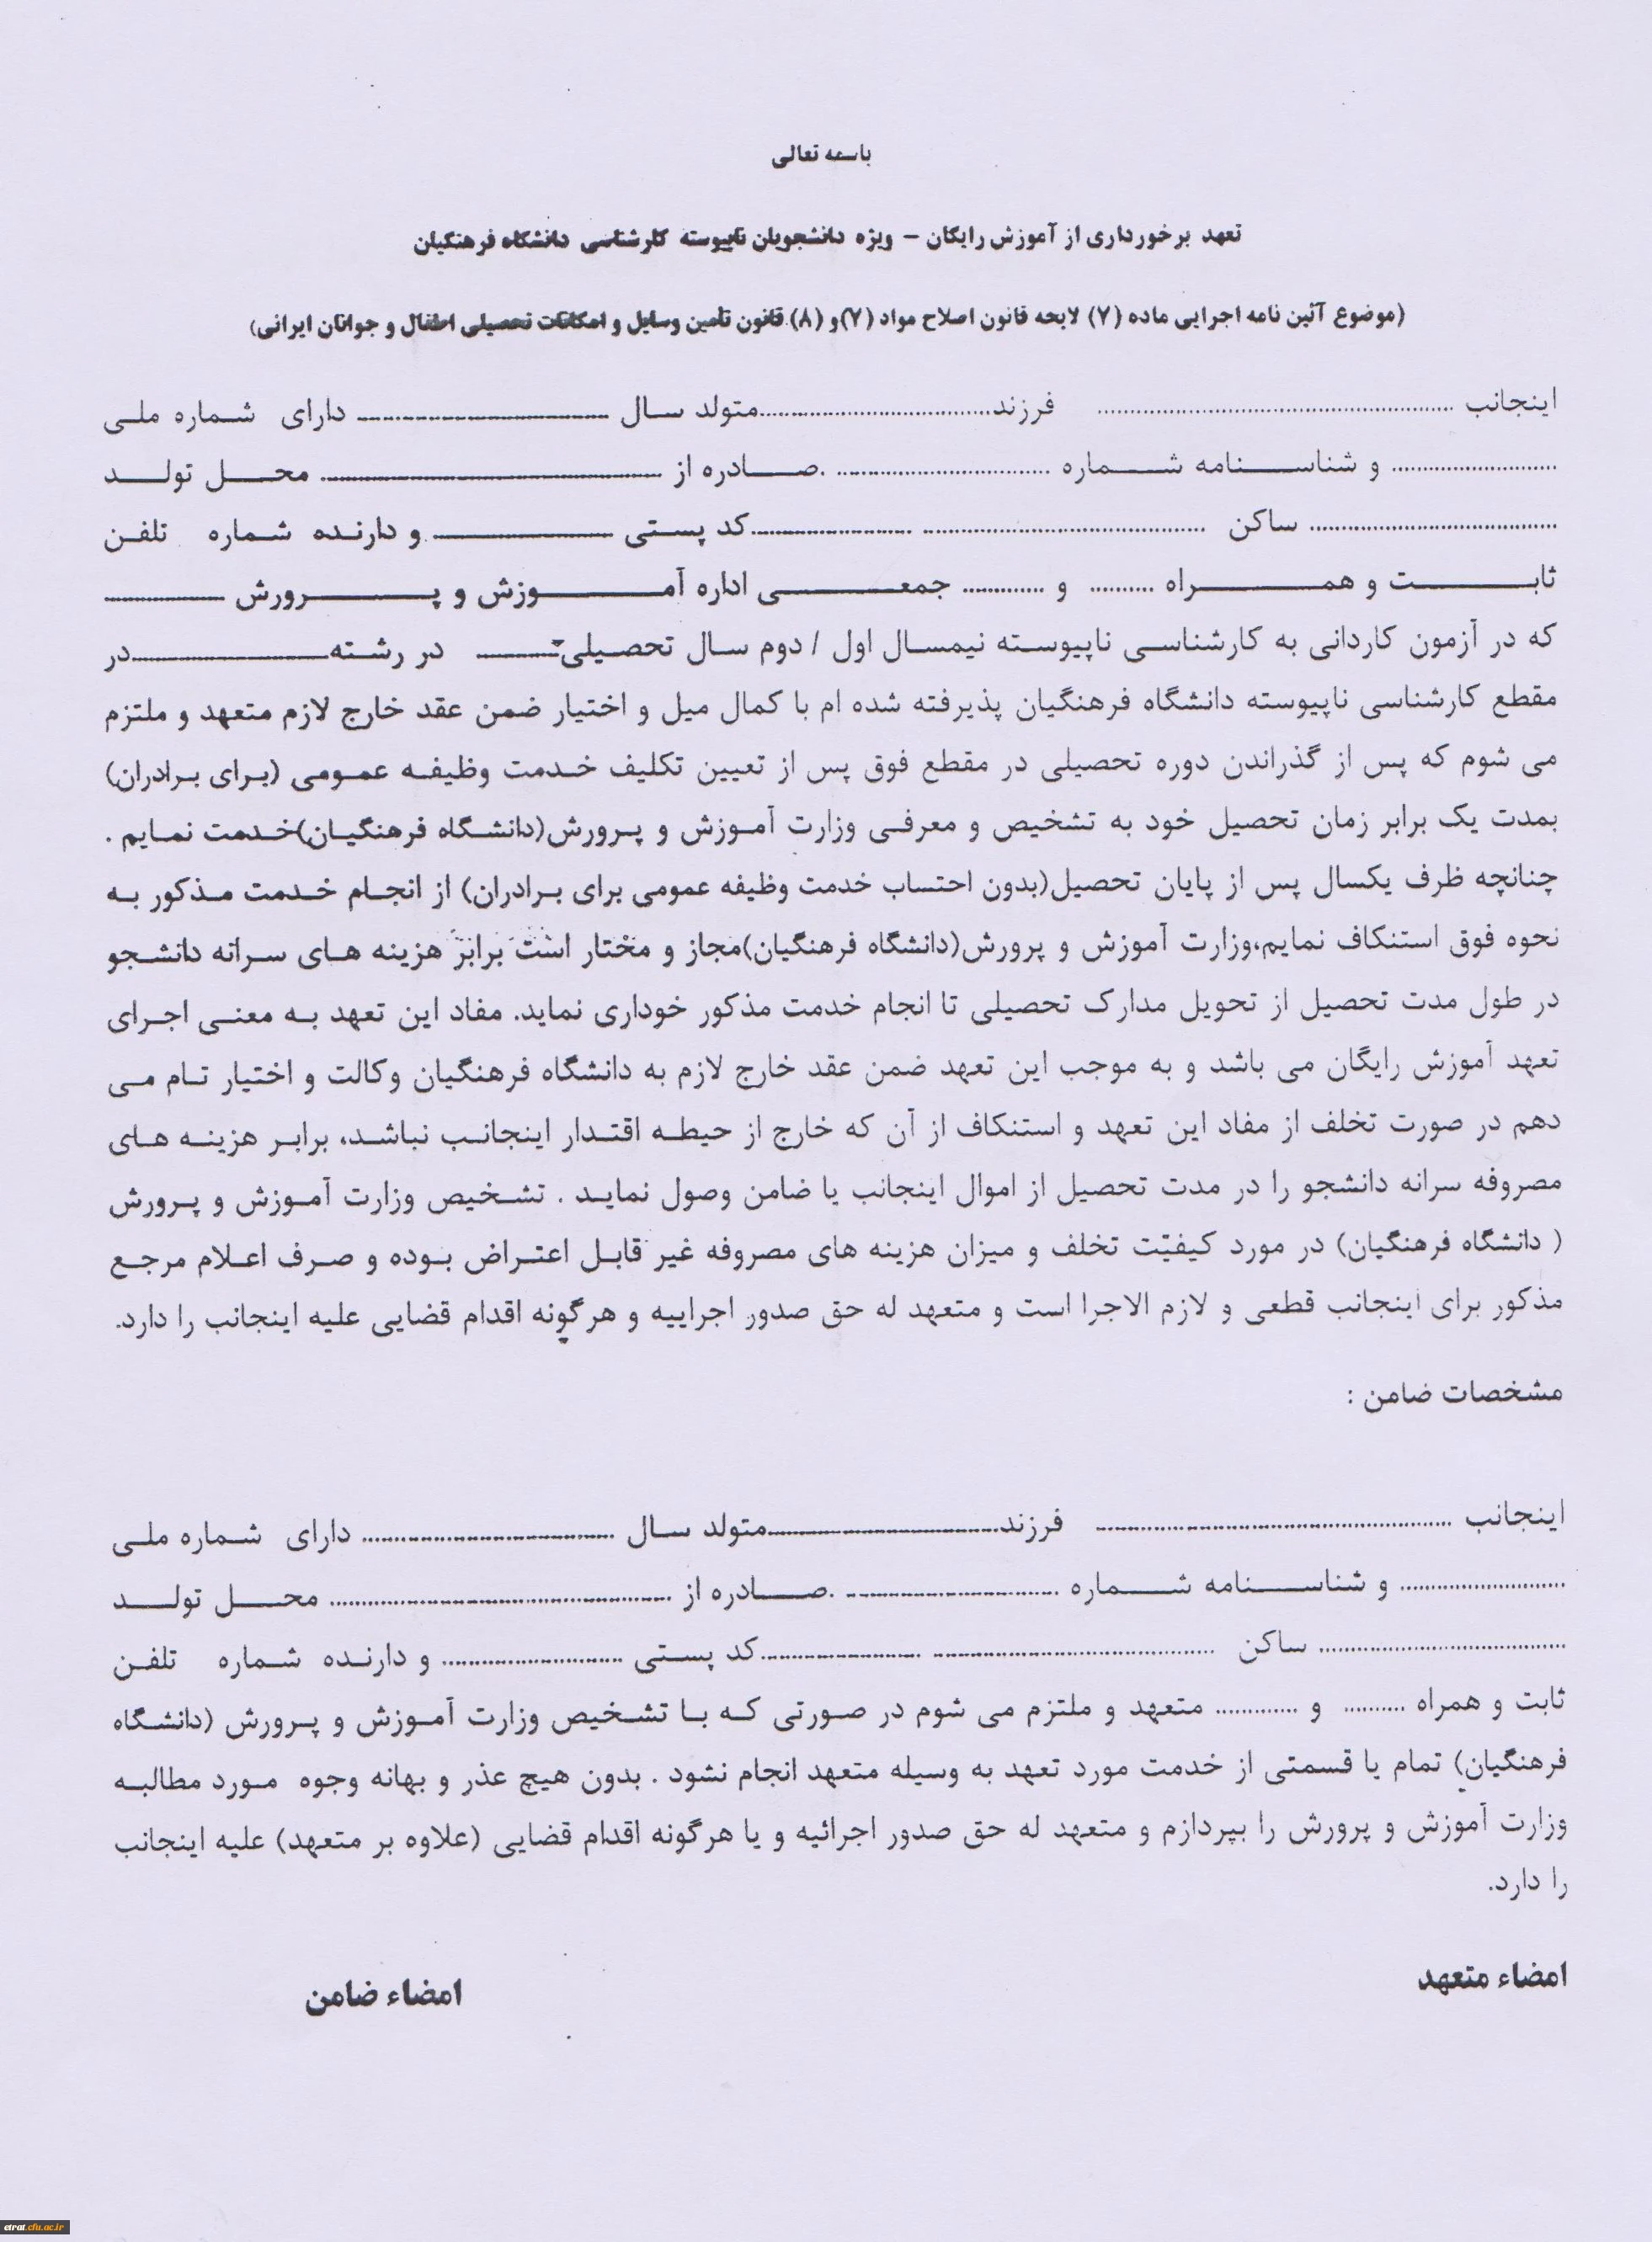 باسمه تعالی
تعهد برخورداری از آموزش رایگان – ویژه دانشجویان ناپیوسته کارشناسی دانشگاه فرهنگیان
(موضوع آئین نامه اجرایی ماده (۷) لایحه قانون اصلاح مواد (۷)و (۸) قانون تامین وسایل و امکانات تحصیلی اطفال و جوانان ایرانی)
اینجانب .................... فرزند....................متولد سال .................... دارای شماره ملی
.................... و شناسنامه شماره .................... .صادره از .................... محل تولد
.................... ساکن .................... ....................کد پستی .................... و دارنده شماره تلفن
ثابت و همراه .......... و ............. جمعی اداره آموزش و پرورش ....................
که در آزمون کاردانی به کارشناسی ناپیوسته نیمسال اول / دوم سال تحصیلی............. در رشته....................در
مقطع کارشناسی ناپیوسته دانشگاه فرهنگیان پذیرفته شده ام با کمال میل و اختیار ضمن عقد خارج لازم متعهد و ملتزم
می شوم که پس از گذراندن دوره تحصیلی در مقطع فوق پس از تعیین تکلیف خدمت وظیفه عمومی (برای برادران)
بمدت یک برابر زمان تحصیل خود به تشخیص و معرفی وزارت آموزش و پرورش(دانشگاه فرهنگیان)خدمت نمایم .
چنانچه ظرف یکسال پس از پایان تحصیل(بدون احتساب خدمت وظیفه عمومی برای برادران) از انجام خدمت مذکور به
نحوه فوق استنکاف نمایم،وزارت آموزش و پرورش(دانشگاه فرهنگیان)مجاز و مختار است برابر هزینه های سرانه دانشجو
در طول مدت تحصیل از تحویل مدارک تحصیلی تا انجام خدمت مذکور خوداری نماید. مفاد این تعهد به معنی اجرای
تعهد آموزش رایگان می باشد و به موجب این تعهد ضمن عقد خارج لازم به دانشگاه فرهنگیان وکالت و اختیار تام می
دهم در صورت تخلف از مفاد این تعهد و استنکاف از آن که خارج از حیطه اقتدار اینجانب نباشد، برابر هزینه های
مصروفه سرانه دانشجو را در مدت تحصیل از اموال اینجانب یا ضامن وصول نماید . تشخیص وزارت آموزش و پرورش
( دانشگاه فرهنگیان) در مورد کیفیّت تخلف و میزان هزینه های مصروفه غیر قابل اعتراض بوده و صرف اعلام مرجع
مذکور برای اینجانب قطعی و لازم الاجرا است و متعهد له حق صدور اجراییه و هرگونه اقدام قضایی علیه اینجانب را دارد.
مشخصات ضامن :
اینجانب .................... فرزند....................متولد سال .................... دارای شماره ملی
.................... و شناسنامه شماره .................... .صادره از .................... محل تولد
.................... ساکن .................... ....................کد پستی .................... و دارنده شماره تلفن
ثابت و همراه .......... و ............. متعهد و ملتزم می شوم در صورتی که با تشخیص وزارت آموزش و پرورش (دانشگاه
فرهنگیان) تمام یا قسمتی از خدمت مورد تعهد به وسیله متعهد انجام نشود . بدون هیچ عذر و بهانه وجوه مورد مطالبه
وزارت آموزش و پرورش را بپردازم و متعهد له حق صدور اجرائیه و یا هرگونه اقدام قضایی (علاوه بر متعهد) علیه اینجانب
را دارد.
امضاء متعهد
امضاء ضامن
etrat.cfu.ac.ir